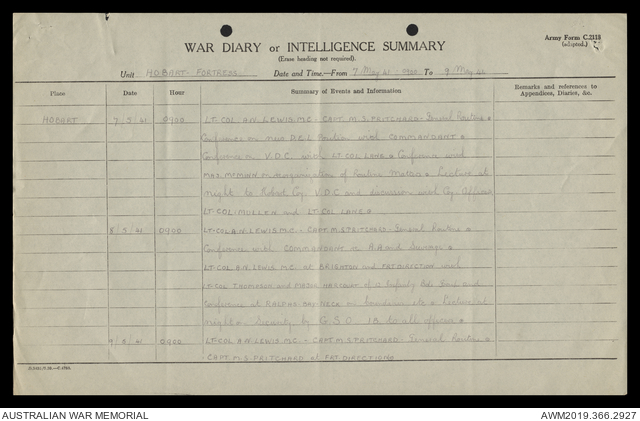 Army Form C.2118
(adapted.)
WAR DIARY or INTELLIGENCE SUMMARY
(Erase heading not required).
Unit HOBART FORTRESS Date and Time—From 7 May 41 : 0900 To 9 May
Place Date Hour Summary of Events and Information Remarks and references to Appendices, Diaries, &c.
HOBART 7/5/41 0900 LT-COL A.N. LEWIS. M.C. - CAPT. M.S. PRITCHARD. General Routine
Conference on new Position with COMMANDANT
Conference on V.D.C. with LT-COL LANE Conference with
MAJ. on reorganisation of Lecture at
night to Hobart Coy V.D.C and discussion with Coy Officers
LT-COL MULLEN and LT-COL LANE
8/5/41 0900 LT-COL A.N. LEWIS M.C. - CAPT. M.S. PRITCHARD General Routine
Conference with COMMANDANT on A.A and
LT-COL A.N. LEWIS M.C. at BRIGHTON and FRT. DIRECTION with
LT-COL THOMPSON and HARCOURT of 12 Bde and
conference at RALPHS BAY NECK on etc Lecture at
night on Security by G.S.O to all officers
9/5/41 0900 LT-COL A.N. LEWIS M.C. - CAPT. M.S. PRITCHARD General Routine
CAPT. M.S. PRITCHARD at FRT. DIRECTION
AUSTRALIAN WAR MEMORIAL AWM2019.366.2927